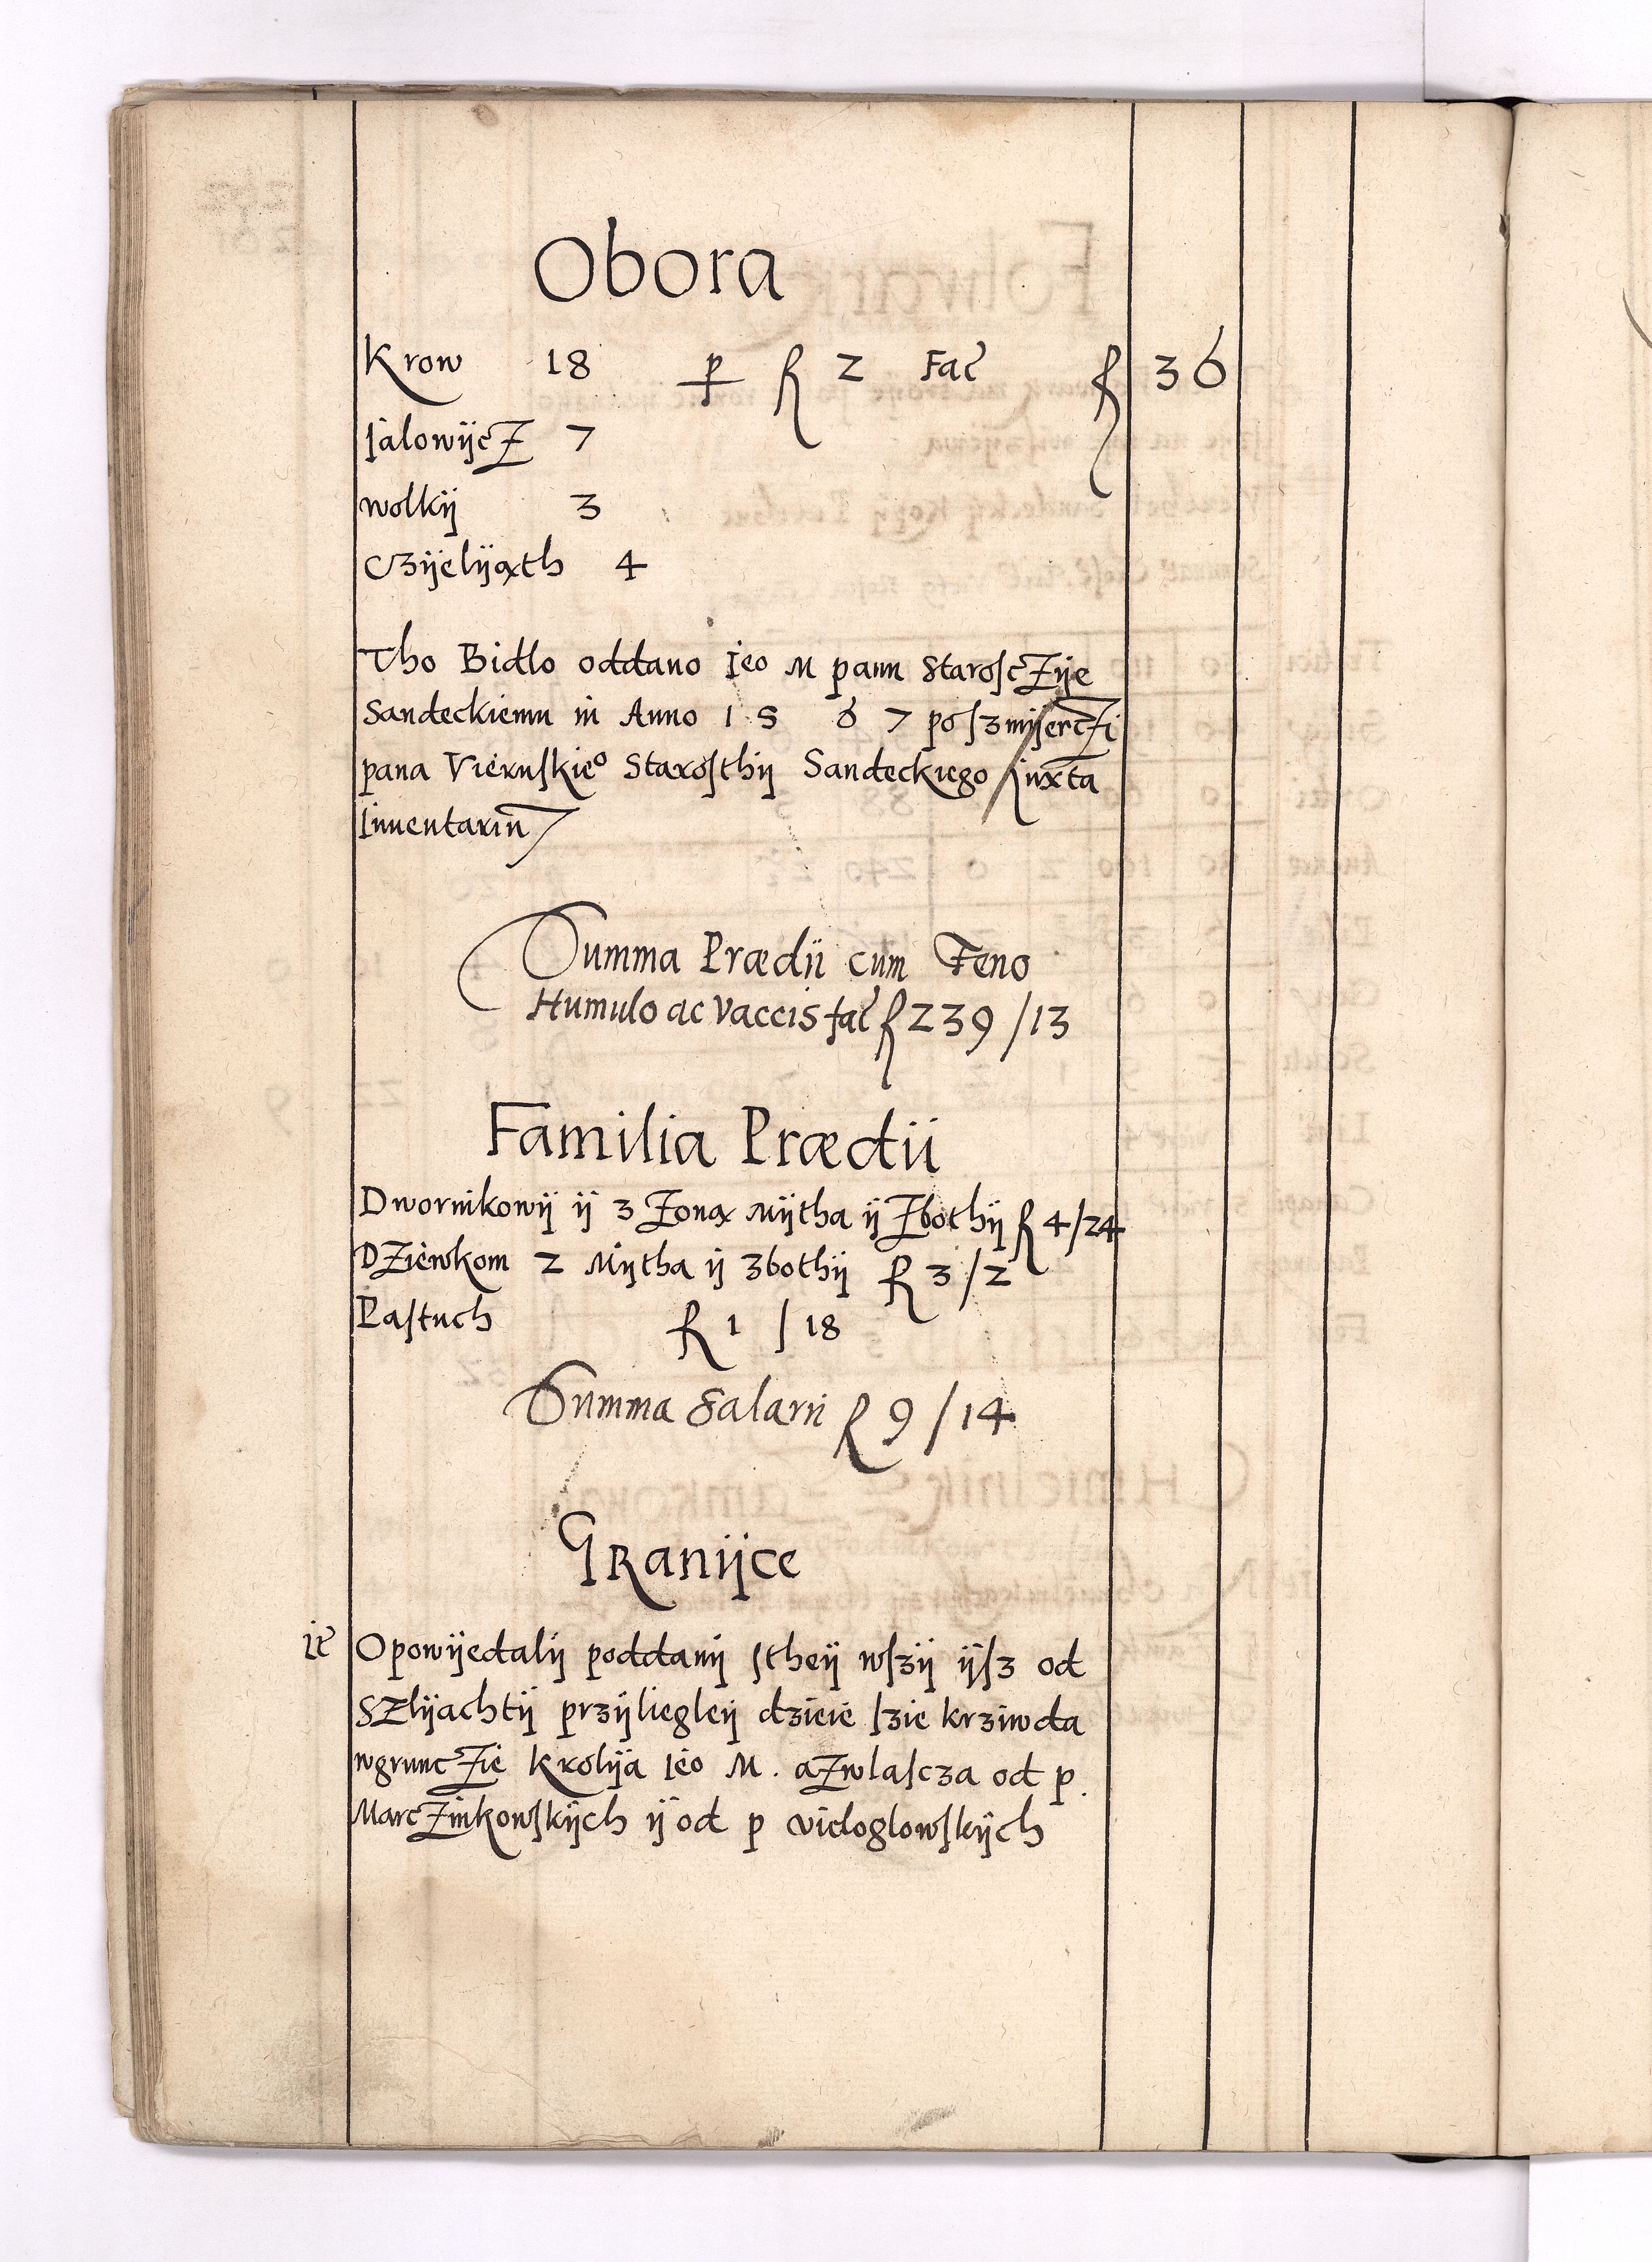 Obora
Krow 18 p fl 2 Fac fl 36
Jalowijcz 7
wolkij 3
Czijelijąth 4
Tho Bidlo oddano Ieo M panu StarosczZije
Sandeckiemu in Anno 1 5 6 7 po szmijerczi
pana Vieruskieo Starosthij Sandeckiego iuxta
Inuentariu
Summa Prædii cum Feno
Humulo ac Vaccis fac fl 239 /13
Familia Prædii
Dwornikowij ij z Zoną Mijtha ij Zbothij fl 4/24
DZiewkom 2 Mijtha ij zbothij fl 3 /2
Pastuch fl 1 /18
Summa Salarii fl 9 /14
Granijce
ie Opowijedalij poddanij stheij wszij ijsz od
SZlijachtij przijliegleij dzieie szie krziwda
wgruncZie Krolija Ieo M. aZwlascza od p.
MarcZinkowskijch ij od p vidoglowskijch